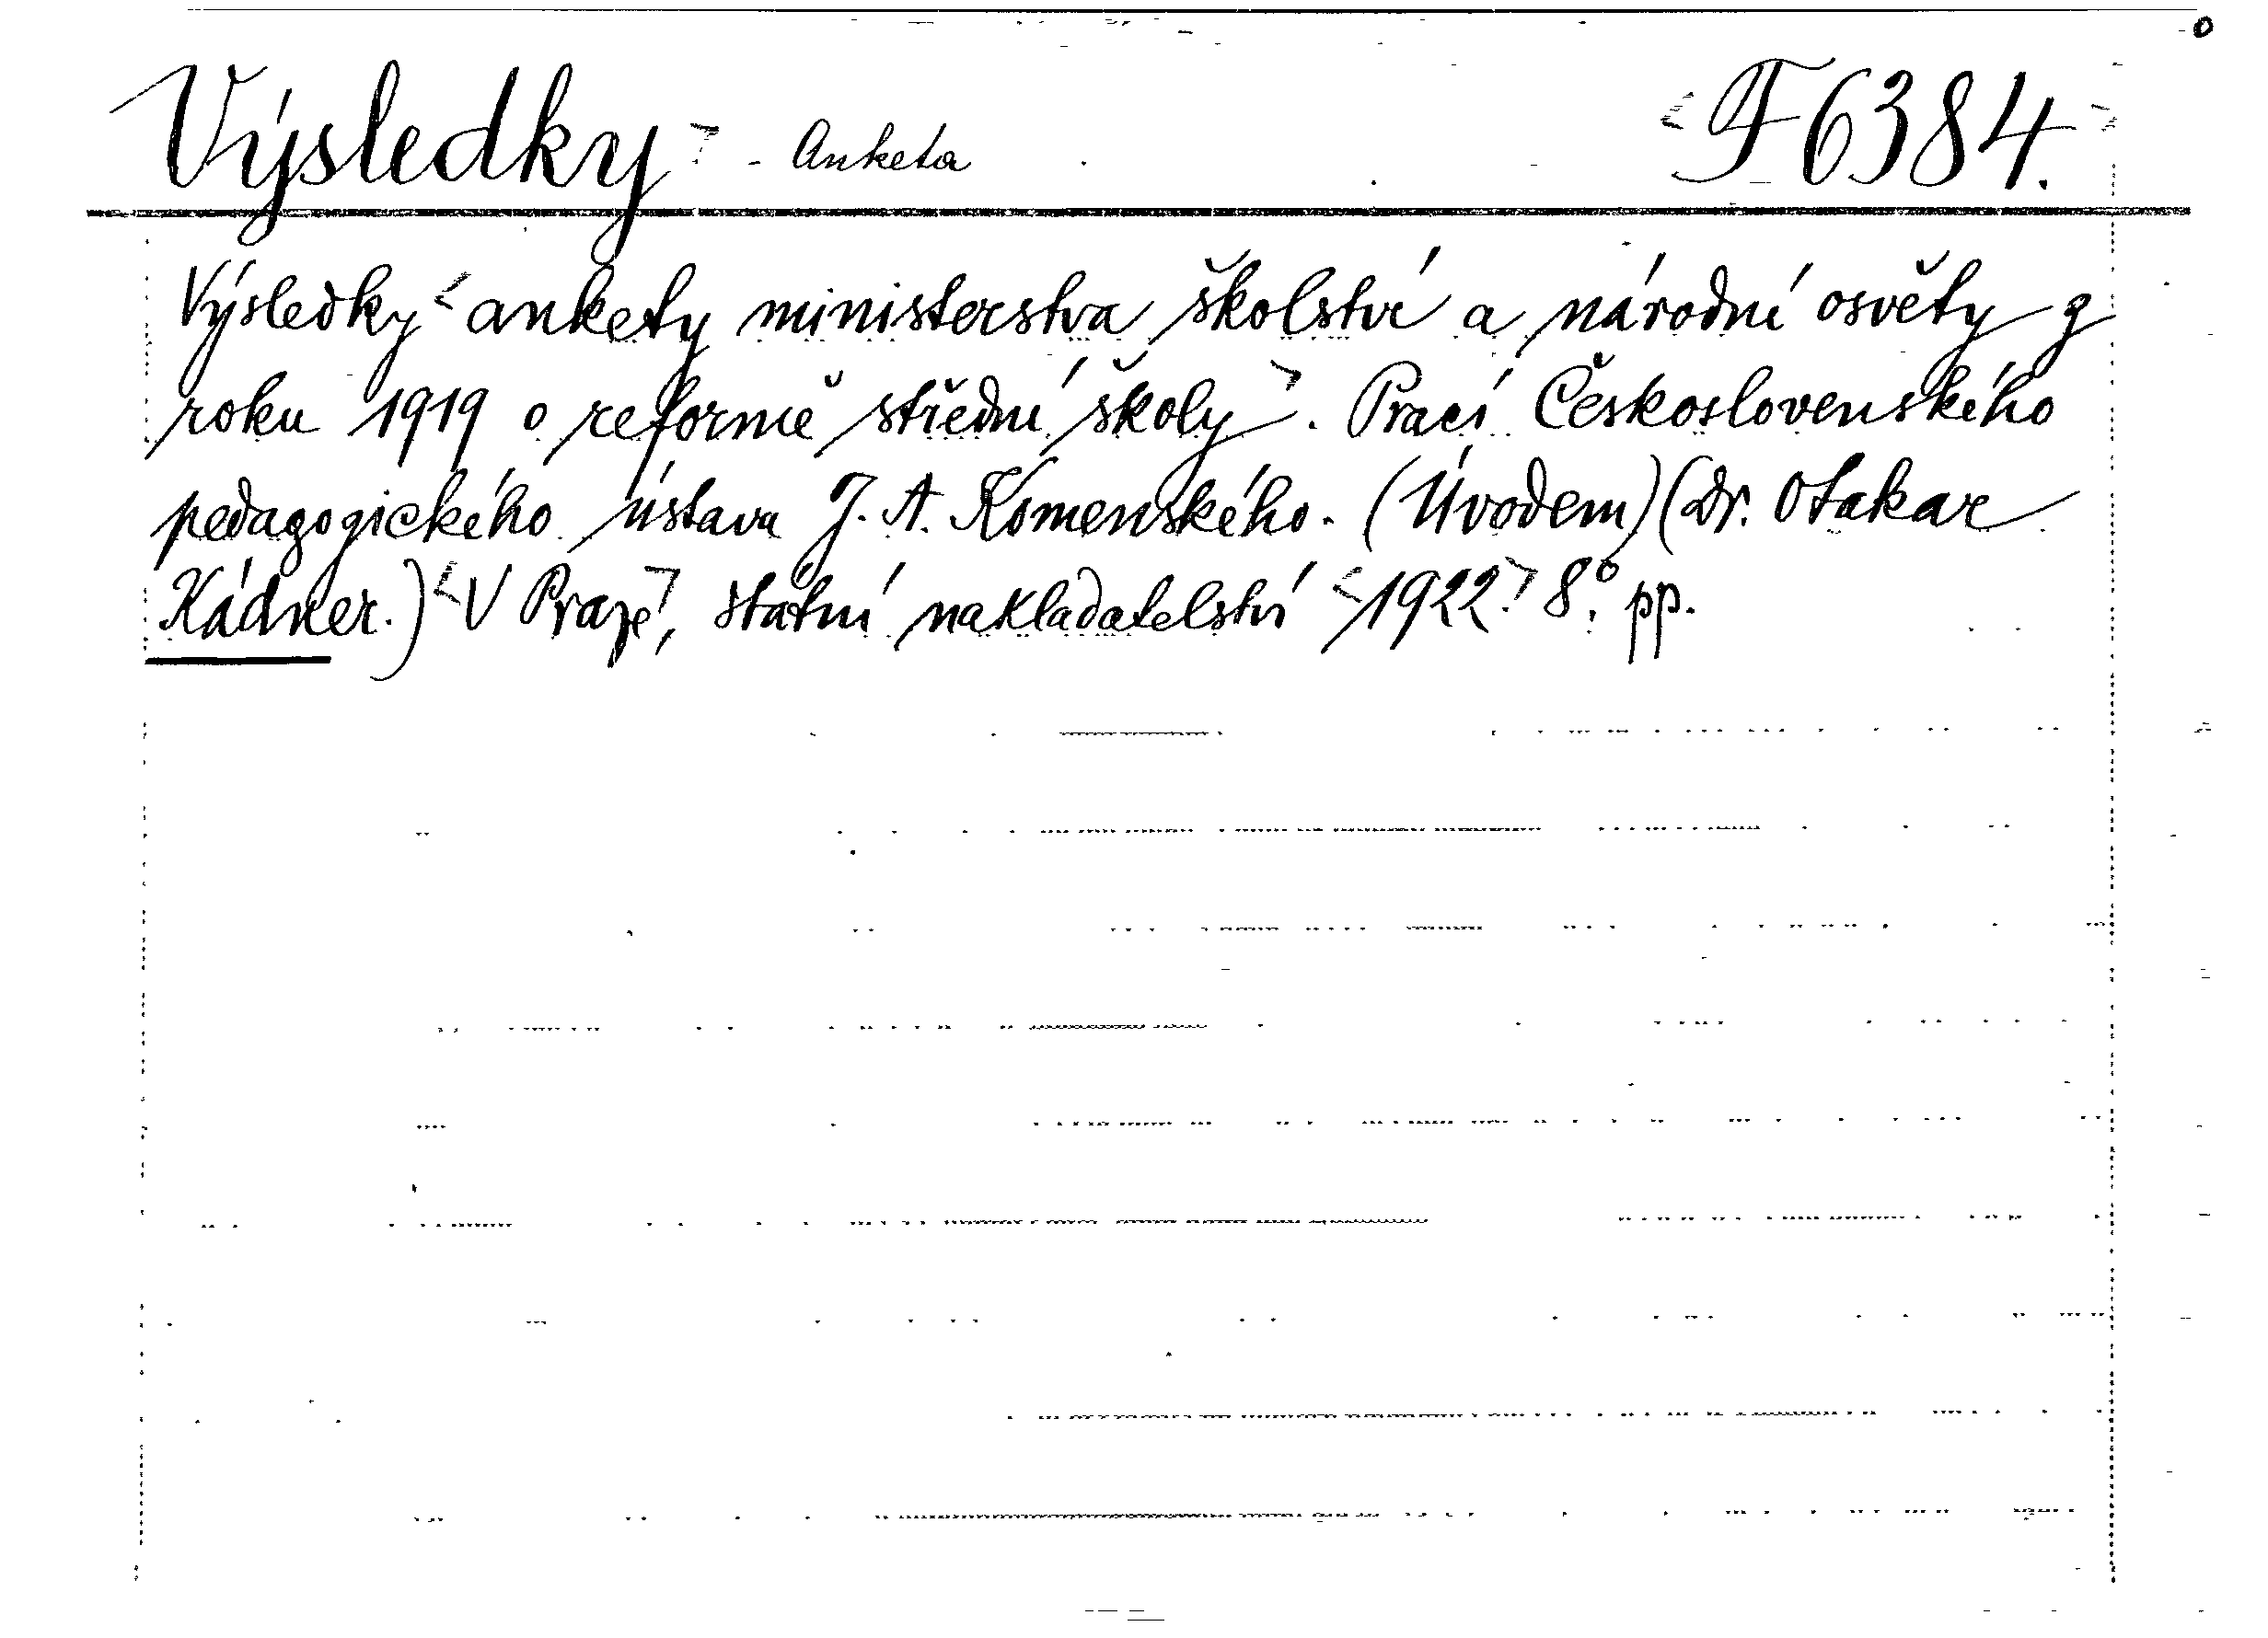 Výsledky - Anketa F 6384.
Výsledky ankety ministerstva školství a národní osvěty z
roku 1919 o reformě střední školy. Prací Československého
pedagogického ústavu J. A. Komenského. (Úvodem) (Dr. Otakar
Kádner.) V Praze, státní nakladatelství 1922. 8°. pp.